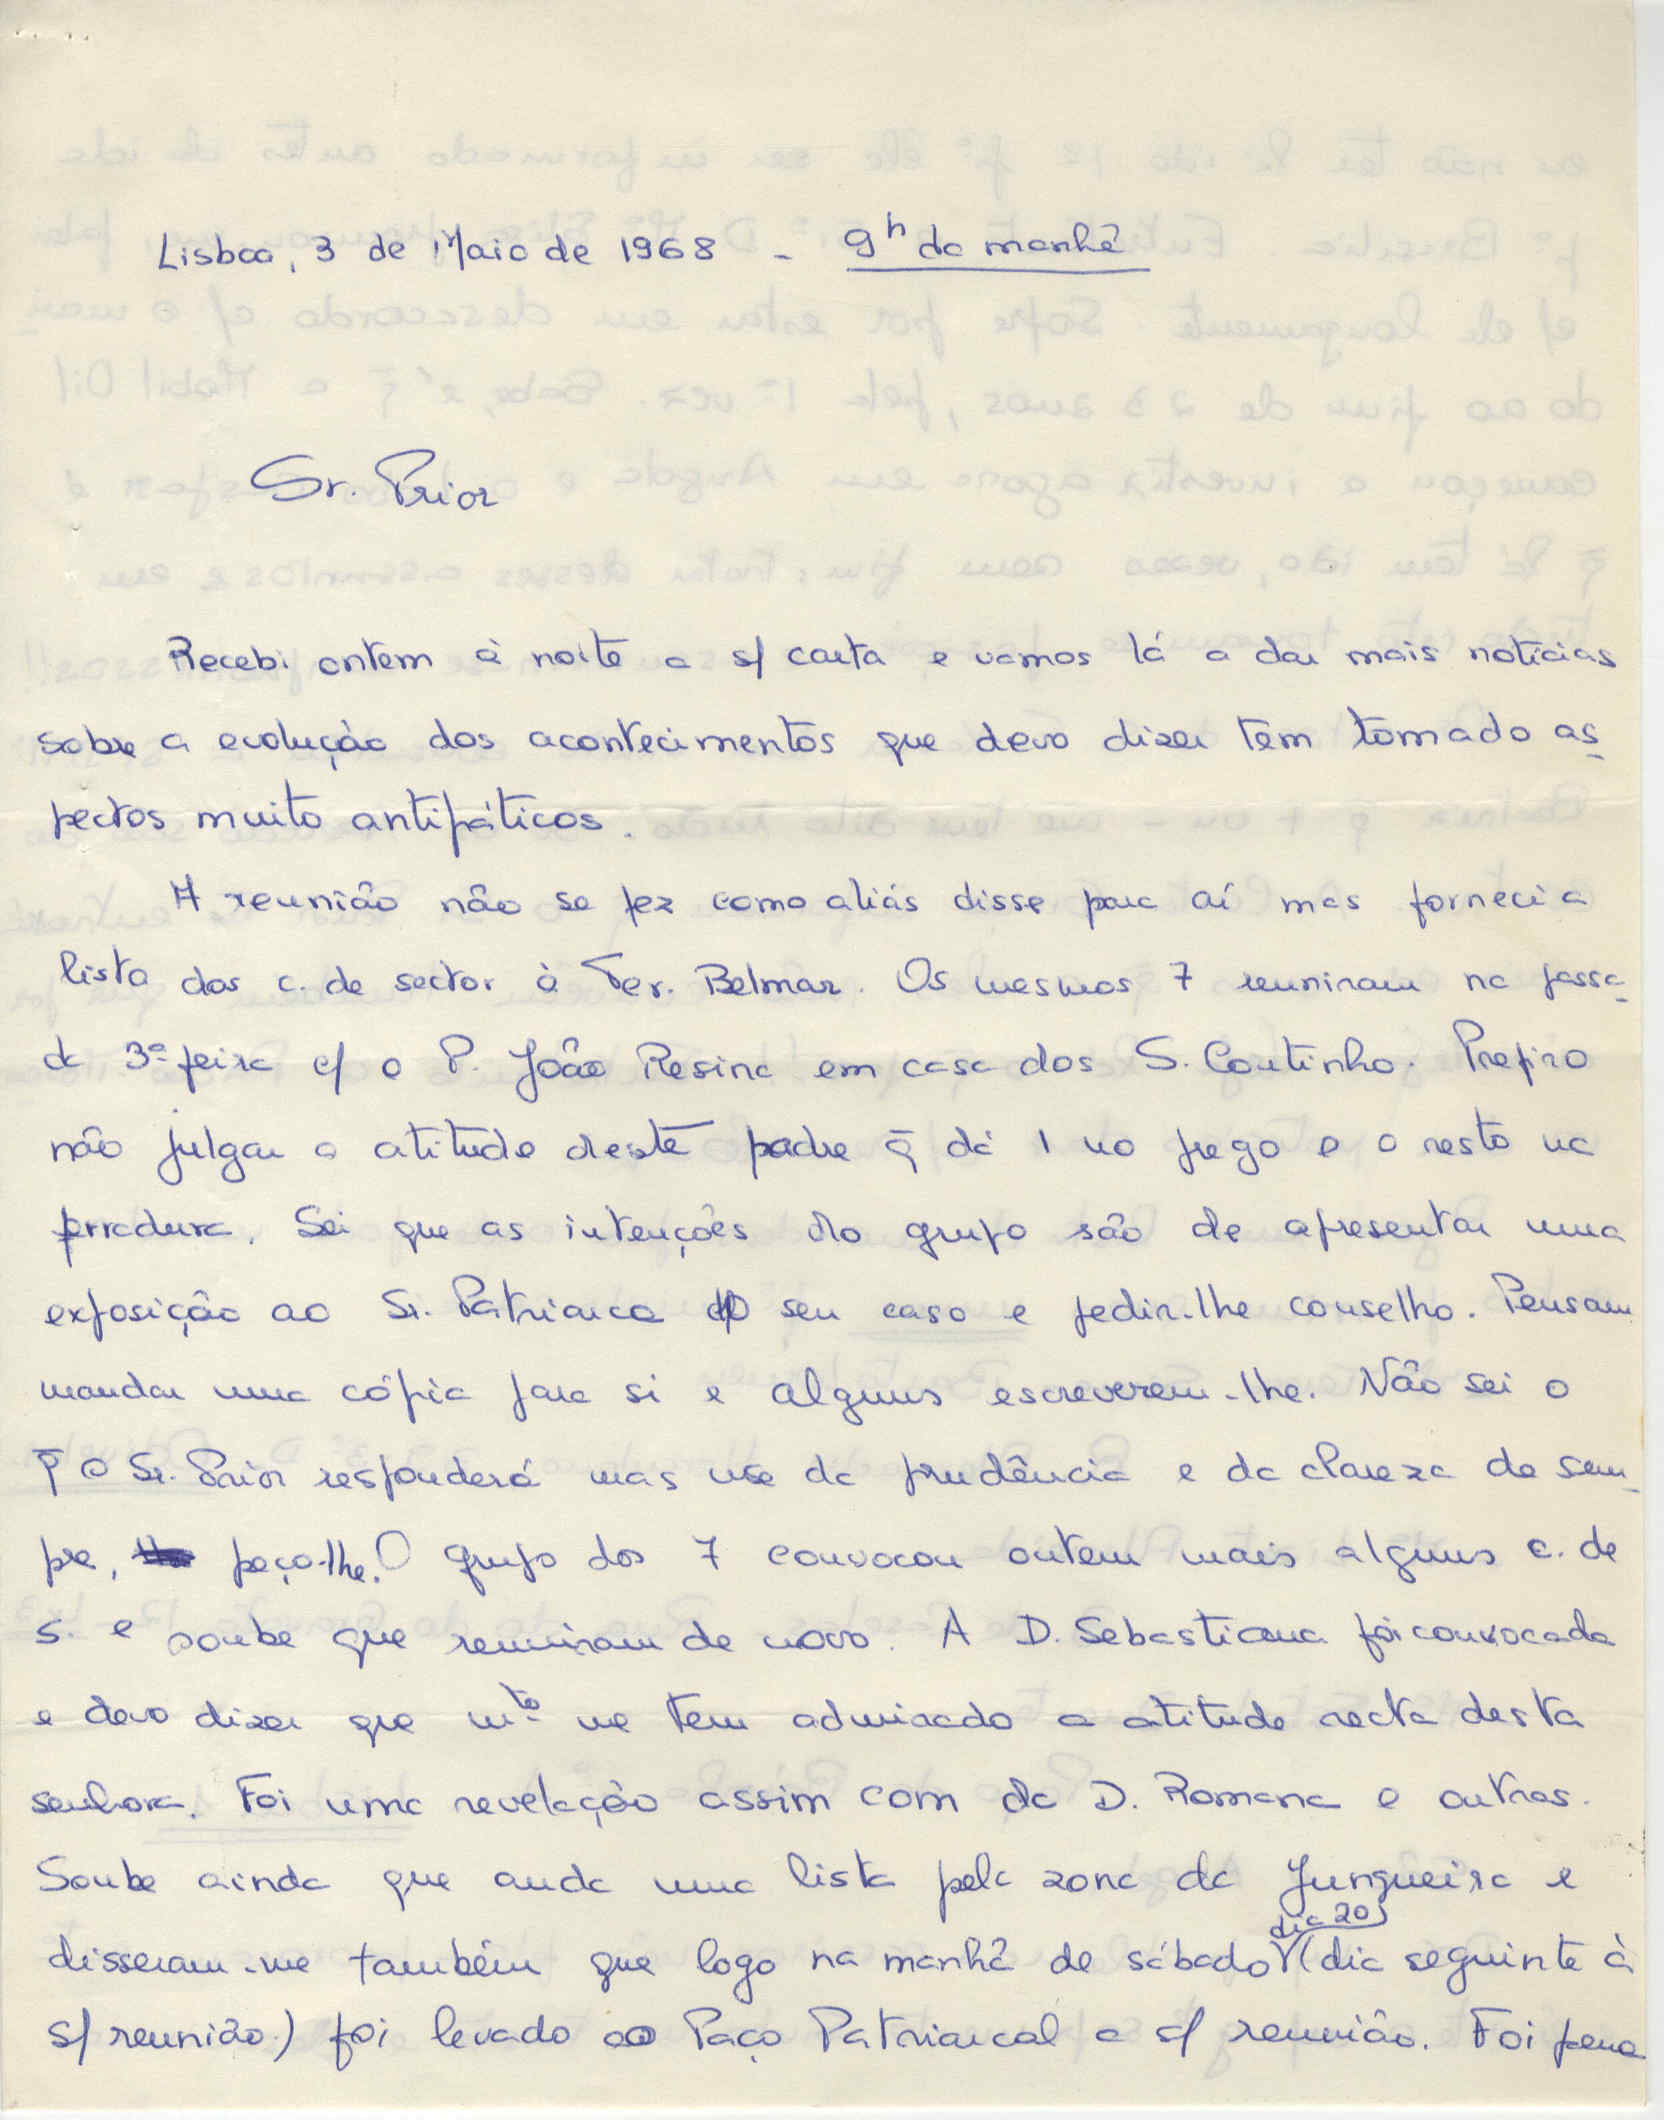 Lisboa, 3 de Maio de 1968 - 9h da manhã
Sr. Prior
Recebi ontem à noite a s/ carta e vamos lá a dar mais notícias
sobre a evolução dos acontecimentos que devo dizer tem tomado as-
pectos muito antipáticos.
A reunião não se fez como aliás disse para aí mas forneci a
lista dos c. de sector à Ter. Belmar. Os mesmos 7 reuniram na passa-
da 3ª feira c/ o P. João Resina em casa dos S. Coutinho. Prefiro
não julgar a atitude deste padre q̄ dá 1 no prego e o resto na
ferradura. Sei que as intenções do grupo são de apresentar uma
exposição ao Sr. Patriarca do seu caso e pedir-lhe conselho. Pensam
mandar uma cópia para si e alguns escreverem-lhe. Não sei o
q̄ o Sr. Prior responderá mas use da prudência e da clareza de sem-
pre, peço-lhe. O grupo dos 7 convocou ontem mais alguns c. de
s. e soube que reuniram de novo. A D. Sebastiana foi convocada
e devo dizer que mtº me tem admirado a atitude recta desta
senhora. Foi uma revelação assim com da D. Romana e outras.
Soube ainda que anda uma lista pela zona da Junqueira e
disseram-me também que logo na manhã de sábado (dia 20) (dia seguinte à
s/ reunião) foi levado ao Paço Patriarcal a s/ reunião. Foi pena